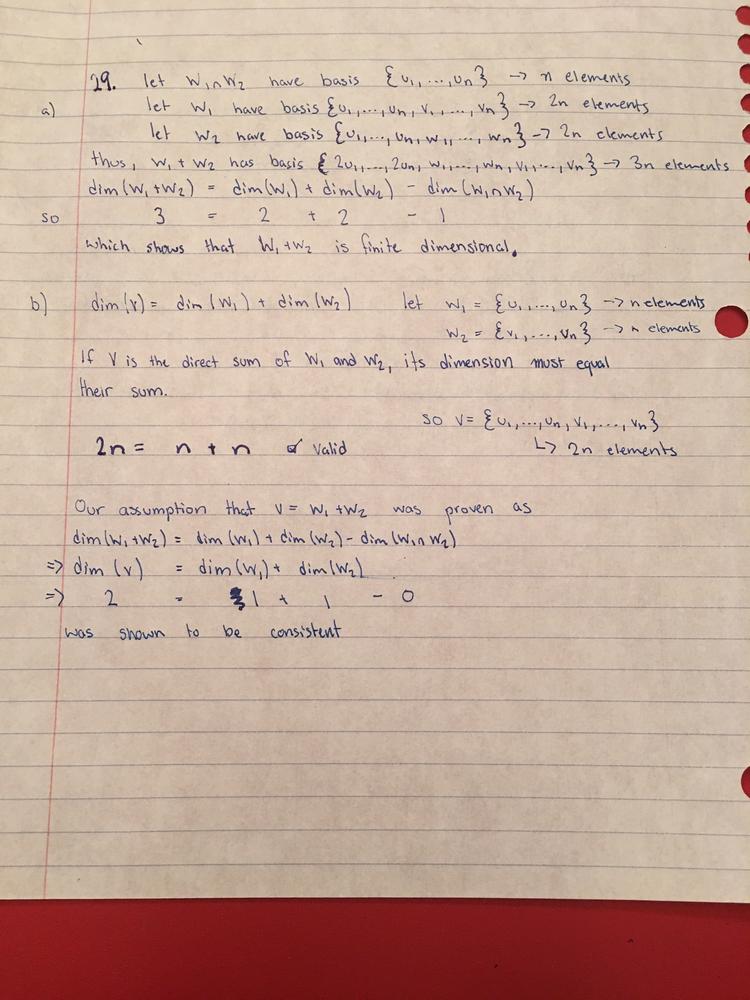 29. let W₁∩W₂ have basis {u₁,...,uₙ} → n elements
a) let W₁ have basis {u₁,...,uₙ, v₁,...,vₙ} → 2n elements
let W₂ have basis {u₁,...,uₙ, w₁,...,wₙ} → 2n elements
thus, W₁+W₂ has basis {2u₁,...,2uₙ, w₁,...,wₙ, v₁,...,vₙ} → 3n elements
dim(W₁+W₂) = dim(W₁) + dim(W₂) - dim(W₁∩W₂)
so 3 = 2 + 2 - 1
which shows that W₁+W₂ is finite dimensional.
b) dim(V) = dim(W₁) + dim(W₂) let W₁ = {u₁,...,uₙ} → n elements
W₂ = {v₁,...,vₙ} → n elements
If V is the direct sum of W₁ and W₂, its dimension must equal
their sum.
so V = {u₁,...,uₙ, v₁,...,vₙ}
2n = n + n ☑ Valid ↳ 2n elements
Our assumption that V = W₁+W₂ was proven as
dim(W₁+W₂) = dim(W₁) + dim(W₂) - dim(W₁∩W₂)
⇒ dim(V) = dim(W₁) + dim(W₂)
⇒ 2 = 1 + 1 - 0
was shown to be consistent